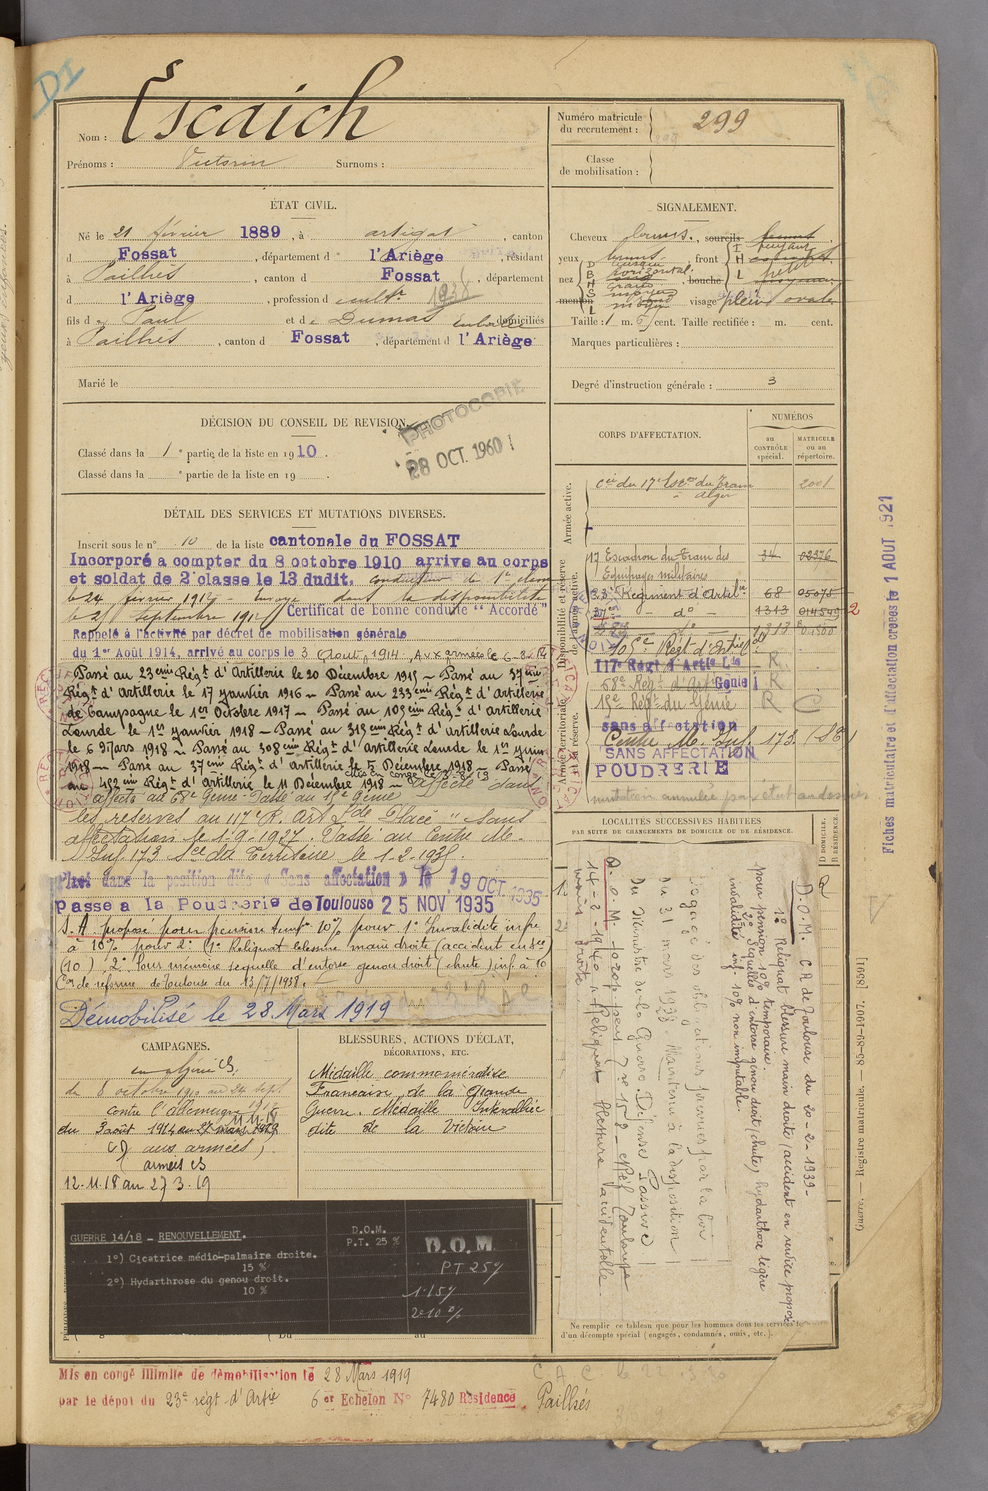 DI
Nom : Escaich
Prénoms : Victorin Surnoms :
ÉTAT CIVIL.
Né le 21 février 1889, à artigat, canton
d Fossat, département d l'Ariège, résidant
à Pailhès, canton d Fossat, département
d l'Ariège, profession d cultr 1938
fils de Paul et de Dumas domiciliés
à Pailhès, canton d Fossat, département d l'Ariège
Marié le
DÉCISION DU CONSEIL DE REVISION.
PHOTOCOPIE
28 OCT. 1960
Classé dans la 1e partie de la liste en 1910.
Classé dans la e partie de la liste en 19
DÉTAIL DES SERVICES ET MUTATIONS DIVERSES.
Inscrit sous le n° 10 de la liste cantonale du FOSSAT
Incorporé a compter du 8 octobre 1910 arrive au corps
et soldat de 2e classe le 13 dudit. conducteur de 1e classe
le 24 février 1912 - envoyé dans la disponibilité
le 25 septembre 1912 Certificat de bonne conduite "Accordé"
Rappelé à l'activité par décret de mobilisation générale
du 1er Août 1914, arrivé au corps le 3 Aout 1914. Aux armées le 6-8-14
Passé au 23eme Régt d'Artillerie le 20 Décembre 1915 - Passé au 37eme
Régt d'Artillerie le 17 Janvier 1916 - Passé au 233eme Régt d'Artillerie
de Campagne le 1er Octobre 1917 - Passé au 105eme Régt d'Artillerie
Lourde le 1er Janvier 1918 - Passé au 315eme Régt d'Artillerie Lourde
le 6 Mars 1918 - Passé au 308eme Régt d'Artillerie Lourde le 1er Juin
1918 - Passé au 37eme Régt d'Artillerie le 5 Décembre 1918 - Passé
au Régt d'Artillerie le 11 Décembre 1918 - Affecté dans
affecté au 68e Génie - Passé au 15e Génie
les réserves au 117e R. Art Lde Placé "Sans
affectation le 1-9-1927. Passé au Centre M-
Inf 173 Sce du Territoire le 1-2-1935.
Placé dans la position dite « Sans affectation » le 19 OCT. 1935
Passe a la Poudrerie de Toulouse 25 NOV 1935
S.A. proposé pour pension temp. 10% pour 1° Invalidité infre
à 10% pour 2° (1° Reliquat blessure main droite (accident en sce)
(10) 2° Pour mémoire sequelle d'entorse genou droit (chute) inf. à 10
Con de reforme de Toulouse du 13/7/1938.
Démobilisé le 28 Mars 1919
CAMPAGNES.
en algérie
du 8 octobre 1910 au 24 sept 1912
contre l'allemagne
du 3 août 1914 au 11.11.18
aux armées
armées
12.11.18 au 27.3.19
BLESSURES, ACTIONS D'ÉCLAT,
DÉCORATIONS, ETC.
Médaille commémorative
Française de la Grande
Guerre. Médaille Interalliée
dite de la Victoire
GUERRE 14/18 - RENOUVELLEMENT.
1°) Cicatrice médio-palmaire droite.
15 %
2°) Hydarthrose du genou droit.
10 %
D.O.M.
P.T. 25 %
D.O.M
PT 25%
1.15%
2e 10 %
Mis en congé illimité de démobilisation le 28 Mars 1919
par le dépot du 23e régt d'Artie 6 er Echelon N° 7480 Résidence Pailhés
Numéro matricule du recrutement : 299
Classe de mobilisation :
SIGNALEMENT.
Cheveux bruns, sourcils
yeux front
nez bouche
menton visage plein ovale
Taille : 1 m. 6 cent. Taille rectifiée : m. cent.
Marques particulières :
Degré d'instruction générale : 3
CORPS D'AFFECTATION.
NUMÉROS
au CONTRÔLE spécial.
MATRICULE ou au répertoire.
Armée active.
Cie du 17e Escon du Train 2001
à alger
Disponibilité et réserve de l'armée active.
17 Escadron du Train des 34 02376
Equipages militaires
33e Régiment d'Artillie 68 05075
37e - do - 1313 014549 2
105e Régt d'Artie
117e Régt d'Artie Lde R
68e Régt d'Art Génie R
Armée territoriale et sa réserve.
15e Régt du Génie R
sans affectation
Centre M. Inf. 173
SANS AFFECTATION
POUDRERIE
mutation annulée par état au dessus
LOCALITÉS SUCCESSIVES HABITÉES
PAR SUITE DE CHANGEMENTS DE DOMICILE OU DE RÉSIDENCE.
D DOMICILE.
R RÉSIDENCE.
D.O.M. C.R de Toulouse du 20-2-1939-
1° Reliquat blessure main droite (accident en service proposé
pour pension 10% temporaire.
2° Sequelles d'entorse genou droit (chute) hydarthrose légère
invalidité inf. 10% non imputable.
Dégagé des obligations prévues par la loi
du 31 mars 1928 Maintenu à la disposition
du Ministre de la Guerre. Défense Passive
D.O.M. - prop. pens. 15% - Toulouse
14-2-1940 - Reliquat blessure accidentelle
main droite
Ne remplir ce tableau que pour les hommes dont les services
d'un décompte spécial (engagés, condamnés, omis, etc.).
Fiches matricule et d'affectation créées le 1 AOUT 1921
Guerre. — Registre matricule — 85-89-1907. [1859]